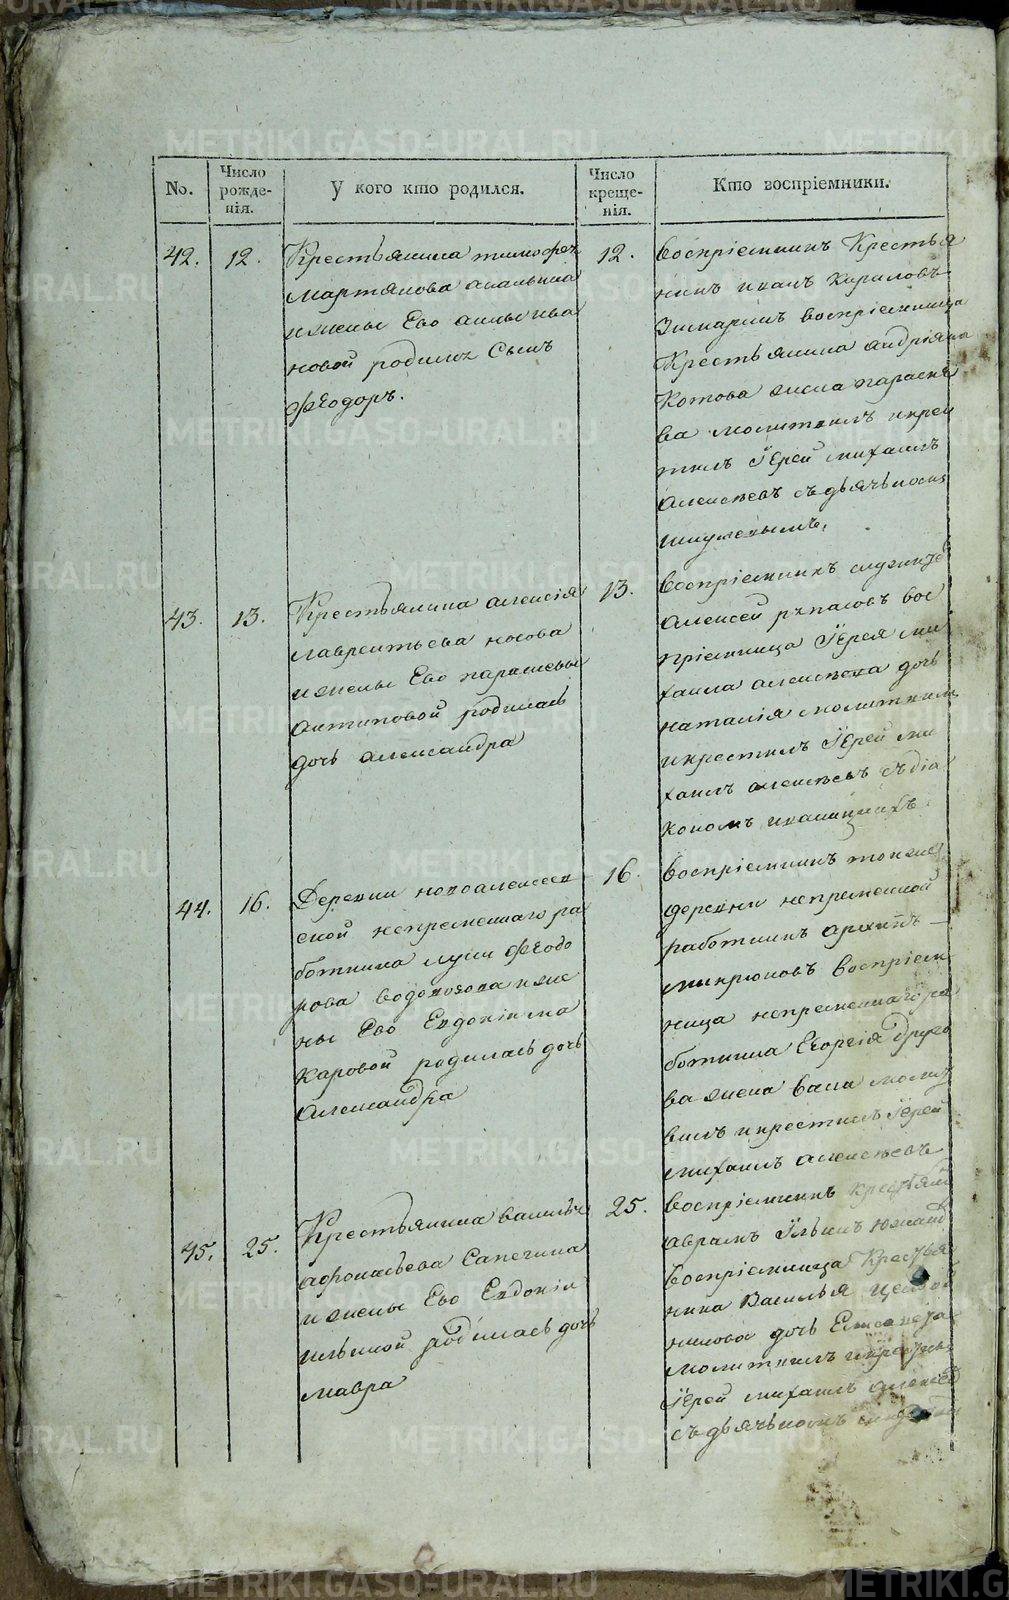 METRIKI.GASO-URAL.RU
No.
Число рожде-нія.
У кого кто родился.
Число креще-нія.
Кто воспріемники.
42.
12.
Крестьянина тимофея
мартянова
и жены Ево
новой родился Сынъ
Феодоръ.
12.
Воспріемникъ Крестья
нинъ иванъ Кириловъ
воспріемница
Крестьянина андріяна
Котова жена параске
ва молитвилъ и крес
тилъ Іерей михаилъ
алексѣевъ съ дьячькомъ
43.
13.
Крестьянина алексія
лаврентьева носова
и жены Ево парасковьи
антиповой родилась
дочь александра
13.
Воспріемникъ
алексей вос
пріемница Іерея ми
хаила алексѣева дочь
наталія молитвилъ
и крестилъ Іерей ми
хаилъ алексѣевъ съ діа
кономъ
44.
16.
Деревни новоалексеев
ской непременнаго ра
ботника луки Феодо
рова водовозова и же
ны Ево Евдокіи ма
каровой родилась дочь
александра
16.
Воспріемникъ тоиже
деревни непременной
работникъ архипъ
воспріем
ница непременнаго ра
ботника Георгія
ва жена молит
вилъ и крестилъ Іерей
михаилъ алексѣевъ
45.
25.
Крестьянина василья
афонасьева Сапегина
и жены Ево Евдокіи
ильиной родилась дочь
мавра
25.
Воспріемникъ
аврамъ Ильинъ
воспріемница Крестья
нина Василья
дочь
молитвилъ и крестилъ
Іерей михаилъ алексѣев
съ дьячькомъ